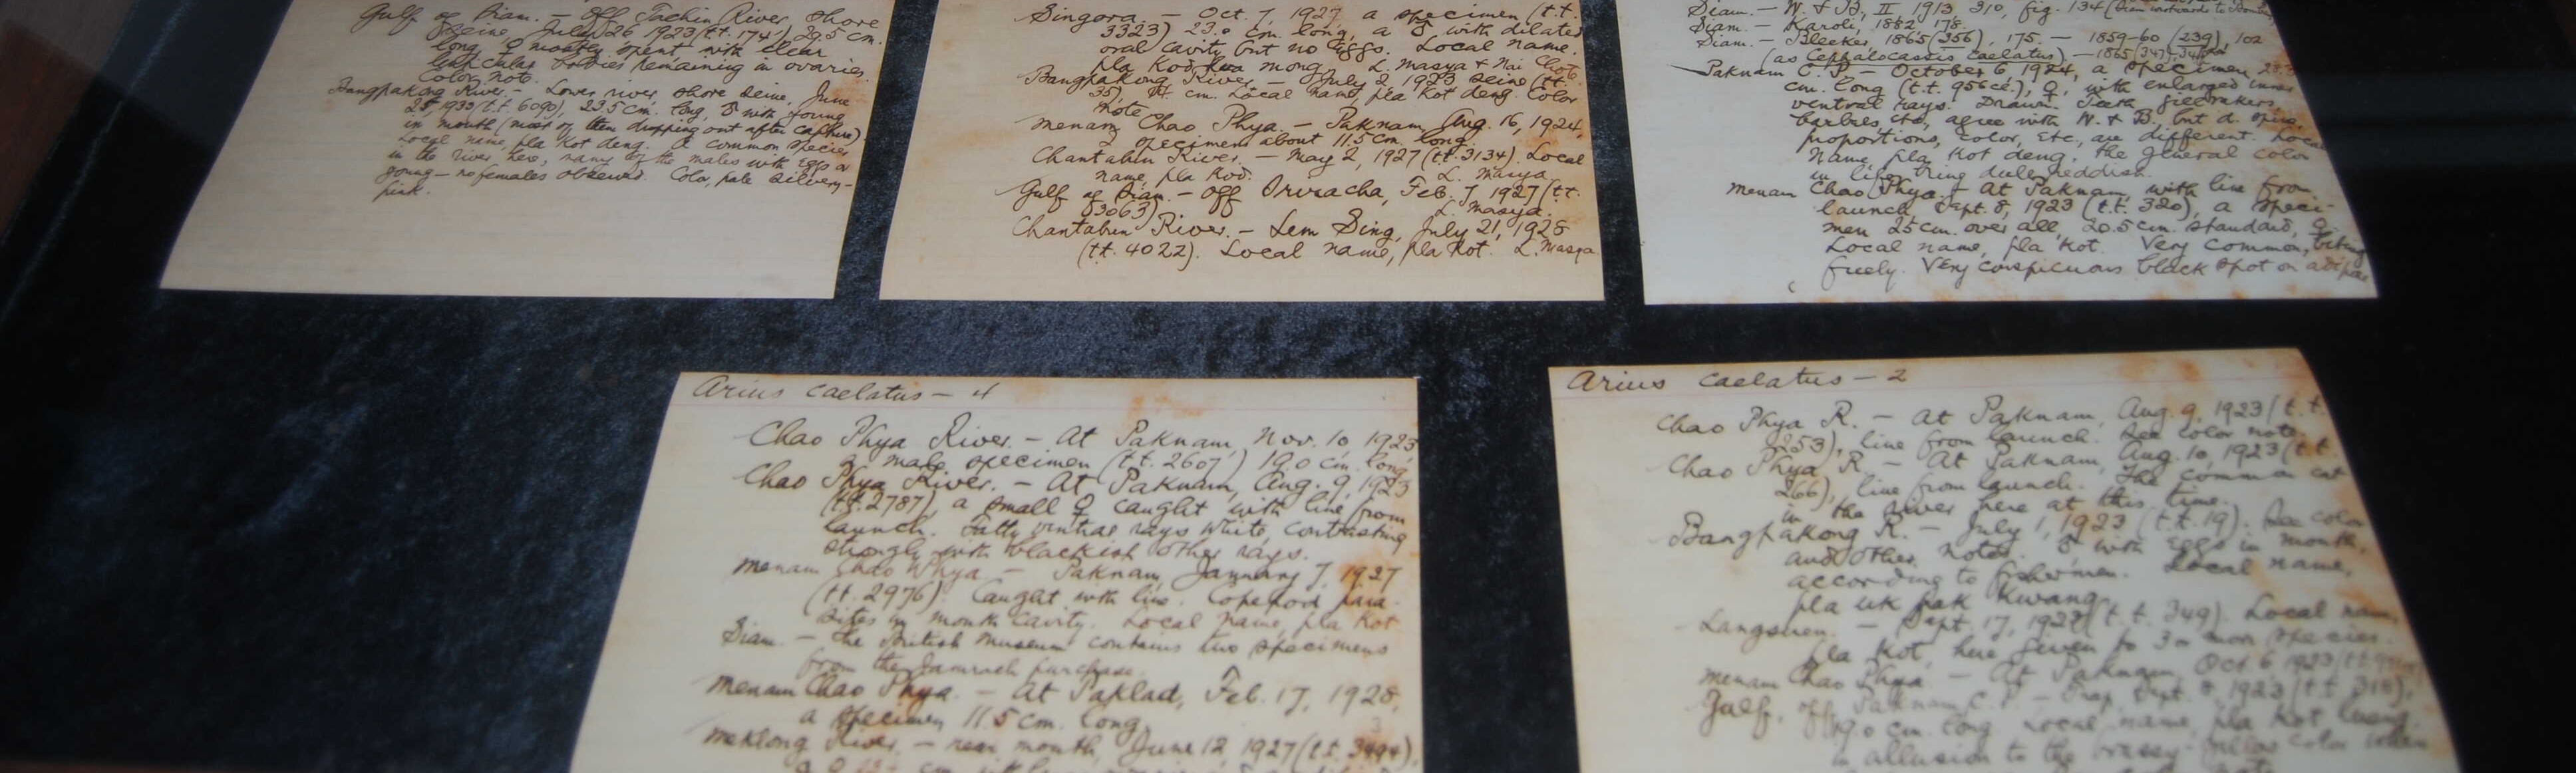 Gulf of Siam. — Off Tachin River, shore
seine, July 26 1923 (tt. 174) 29.5 cm.
long, ♀ mostly spent with clear
bodies remaining in ovaries.
Color note.
Bangpakong River. — Lower river, shore seine, June
25, 1933 (t.t 6090), 23.5 cm. long, ♂ with young
in mouth (most of them dropping out after capture)
Local name, pla kot deng. A common species
in the river here, many of the males with eggs or
young — no females observed. Color, pale silvery-
pink.
Singora. — Oct. 7, 1927, a specimen (t.t.
3323) 23.0 cm. long, a ♂ with dilated
oral cavity but no eggs. Local name,
pla kod mong. L. Masya & Nai Chote
Bangpakong River — July 2, 1923 seine (tt.
35) cm. Local name, pla kot deng. Color
note
Menam Chao Phya. — Paknam, Aug. 16, 1924,
2 specimens about 11.5 cm. long.
Chantabun River. — May 2, 1927 (tt. 3134). Local
name, pla kod. L. Masya
Gulf of Siam. — Off Sriracha, Feb. 7 1927 (tt.
3063) L. Masya.
Chantabun River. — Lem Sing, July 21, 1928
(tt. 4022). Local name, pla kot. L. Masya.
Siam. — W. & B., II 1913 310, fig. 134
Siam. — Karoli, 1882, 178.
Siam. — Bleeker, 1865 (356), 175. — 1859-60 (239), 102
(as Cephalocassis caelatus) — 1865
Paknam C. P. — October 6, 1924, a specimen
cm. long (t.t. 956 ce.), ♀, with enlarged inner
ventral rays. Drawn. Teeth, gillrakers,
barbels, etc, agree with W. & B. but d. spine,
proportions, color, etc, are different. Local
name, pla kot deng, the general color
in life being dull reddish.
Menam Chao Phya. — At Paknam, with line from
launch, Sept. 8, 1923 (t.t. 320), a speci-
men 25 cm. over all, 20.5 cm. standard, ♀.
Local name, pla kot. Very common, biting
freely. Very conspicuous black spot on adipose
Arius caelatus — 4
Chao Phya River. — At Paknam, Nov. 10, 1923
a male specimen (t.t. 2607) 19.0 cm. long
Chao Phya River. — At Paknam, Aug. 9, 1923
(tt. 2787), a small ♀ caught with line from
launch. Fatty ventral rays white, contrasting
strongly with blackish other rays.
Menam Chao Phya — Paknam, January 7, 1927
(tt. 2976). Caught with line. Copepod para-
sites in mouth cavity. Local name, pla kot
Siam. — The British Museum contains two specimens
from the Jamrach purchase.
Menam Chao Phya. — At Paklad, Feb. 17, 1928,
a specimen 11.5 cm. long.
Meklong River. — near mouth, June 12, 1927 (t.t. 3494),
Arius caelatus — 2
Chao Phya R. — At Paknam, Aug. 9, 1923 (t.t.
253), line from launch. See color note.
Chao Phya R. — At Paknam, Aug. 10, 1923 (t.t.
266), line from launch. The common cat
in the river here at this time.
Bangpakong R. — July 1, 1923 (t.t. 19). See color
and other notes. ♂ with eggs in mouth,
according to fishermen. Local name,
pla uk pak kwang.
Langsuen. — Sept. 17, 1923 (t.t. 349). Local name,
pla kot, here given to 3 or more species.
Menam Chao Phya — At Paknam, Oct 6 1923
Gulf, off Paknam C.P. — Trap, Sept. 8, 1923 (t.t. 314),
19.0 cm. long. Local name, pla kot luang
in allusion to the brassy-yellow color when